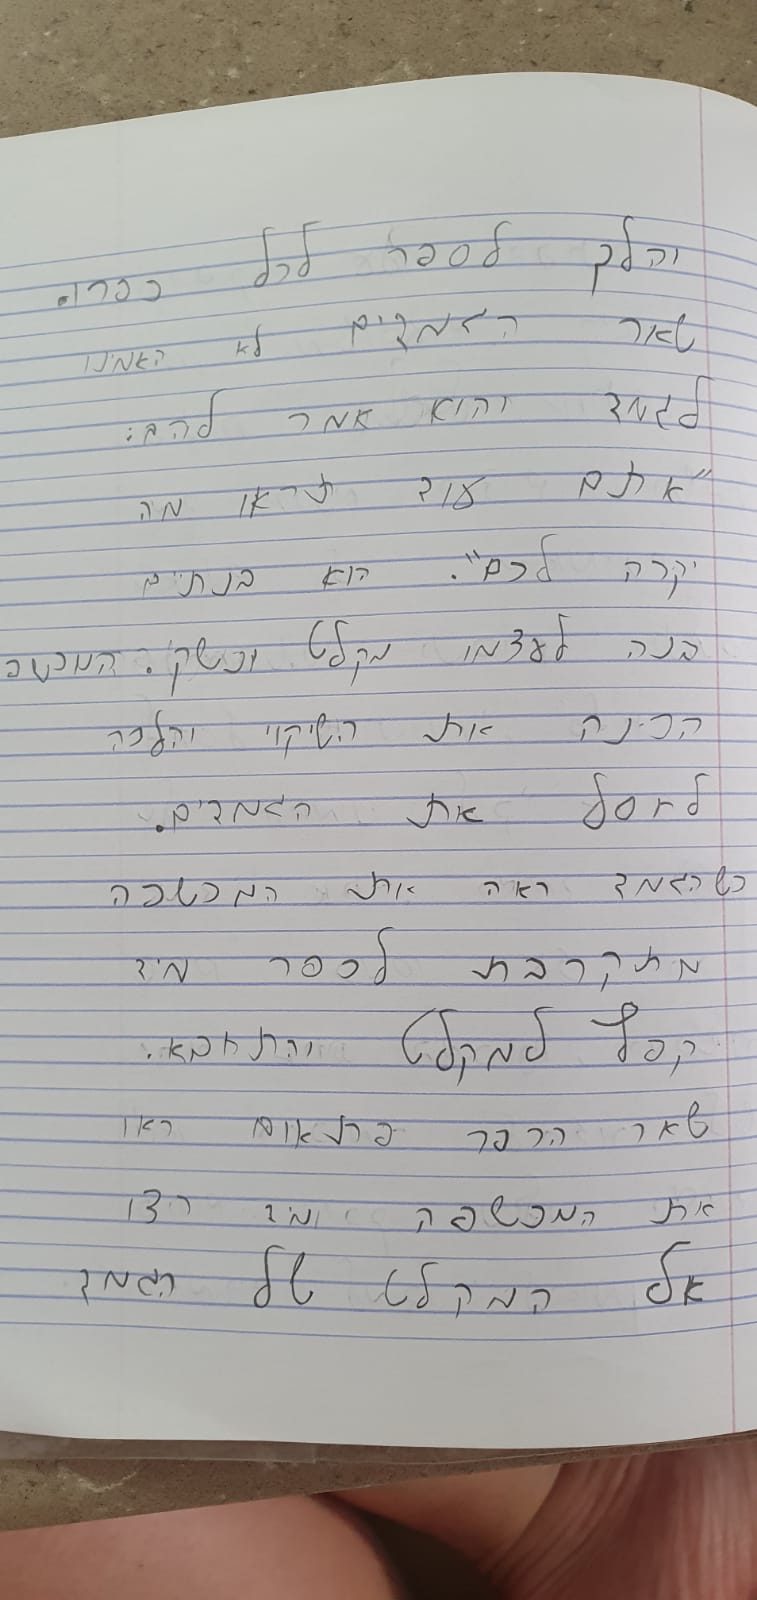 והלך לספר לכל כפרו.
שאר הגמדים לא האמינו
לגמד והוא אמר להם:
"אתם עוד תראו מה
יקרה לכם". הוא בנתיים
בנה לעצמו מקלט המכשפ
הכינה את השיקוי והלכה
לחסל את הגמדים.
כשהגמד ראה את המכשפה
מתקרבת לכפר מיד
קפץ למקלט והתחבא.
שאר הכפר פתאום ראו
את המכשפה ומיד רצו
אל המקלט של הגמד